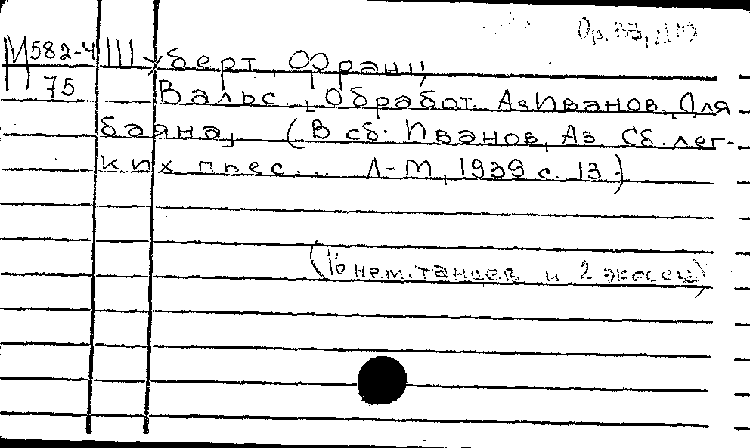 М582-4 Шуберт, Франц
75 Вальс, Обработ. Аз Иванов, Для
баяна, (В сб. Иванов, Аз. Сб. лег-
ких пьес... Л-М, 1939 с. 13.)
(16 нем. танцев и 2 экосеза)